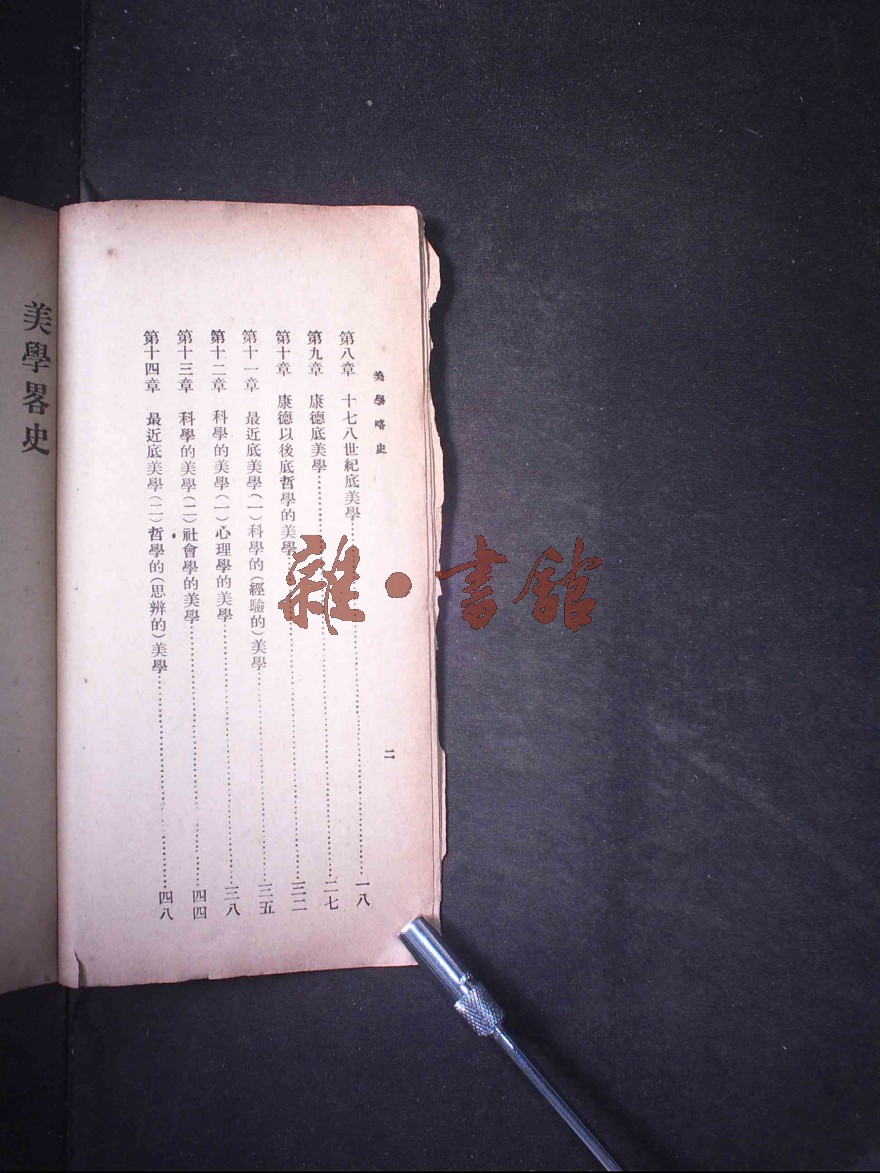 美學略史
二
第八章 十七八世紀底美學……一八
第九章 康德底美學……二七
第十章 康德以後底哲學的美學……三二
第十一章 最近底美學(一)科學的(經驗的)美學……三五
第十二章 科學的美學(一)心理學的美學……三八
第十三章 科學的美學(二)社會學的美學……四四
第十四章 最近底美學(二)哲學的(思辨的)美學……四八
美學畧史
雜·書館